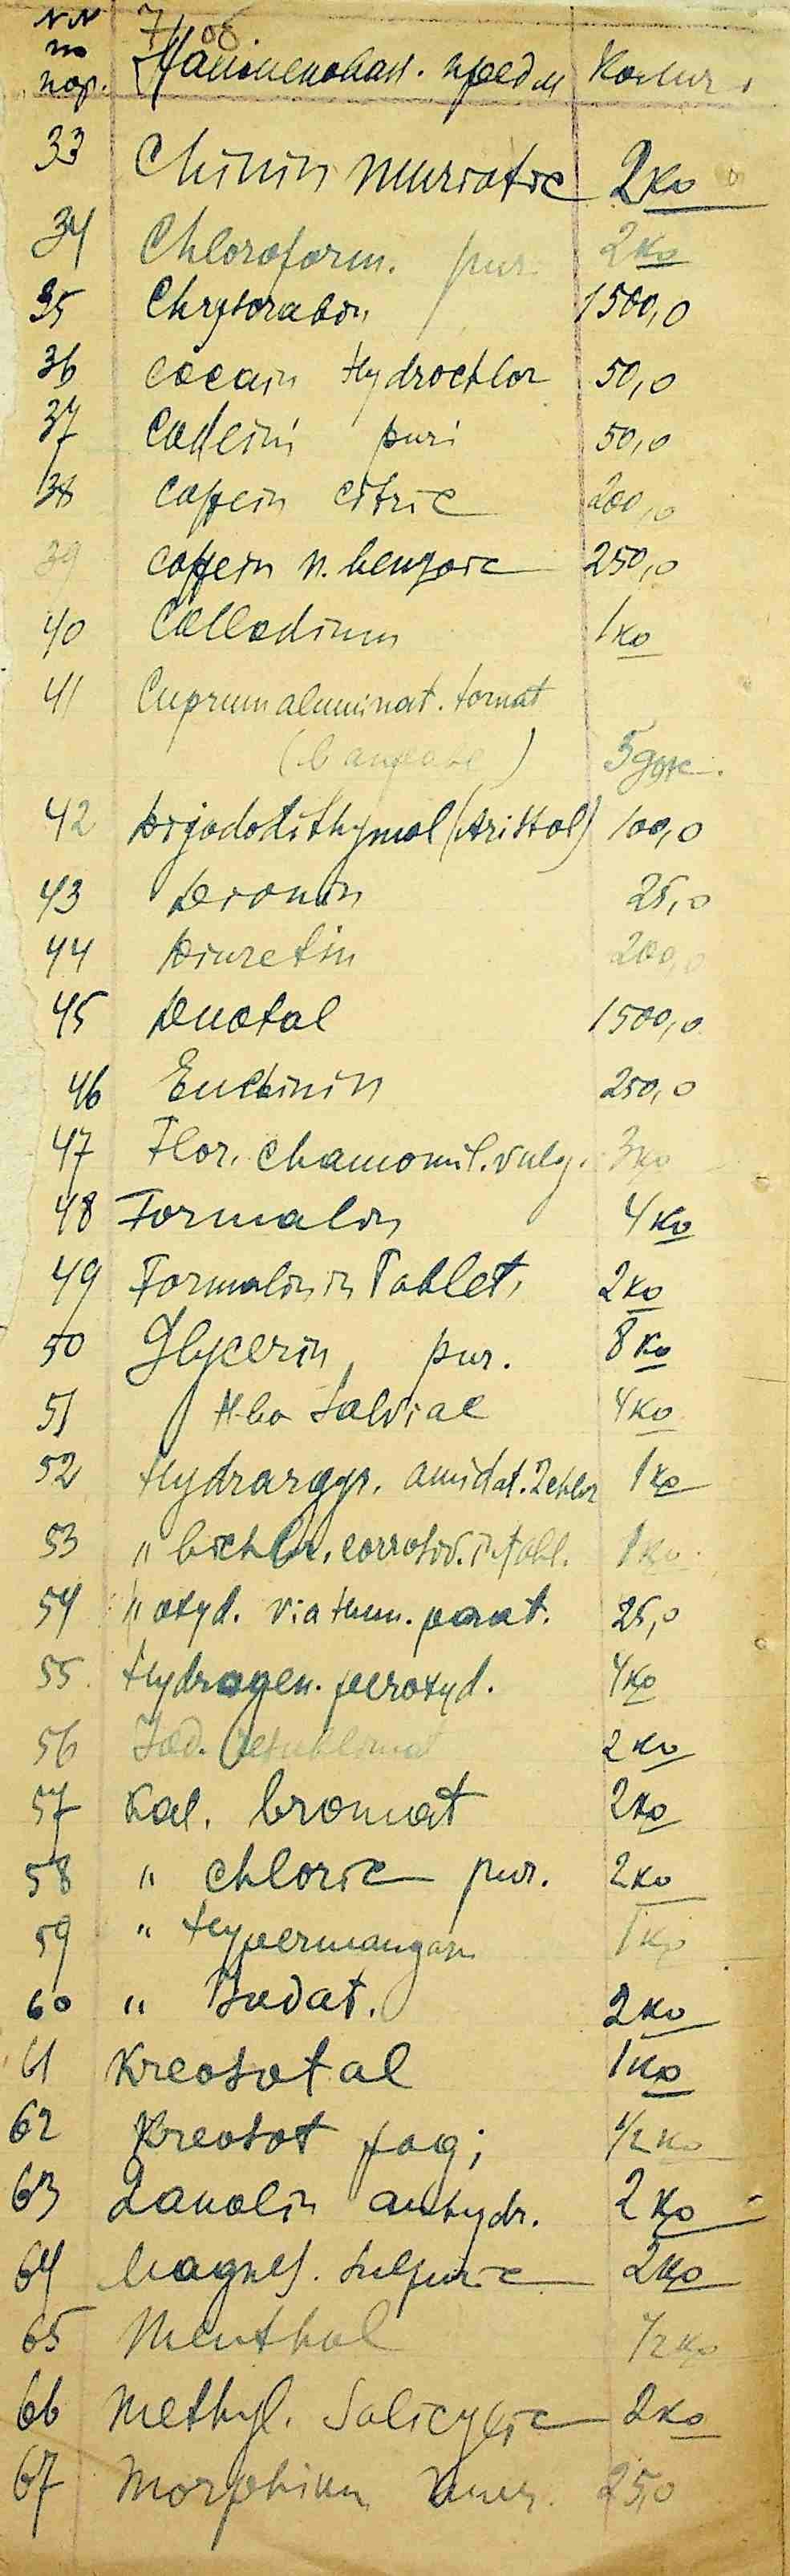 NN по пор. Наименован. предм Колич.
33 Chinin muriatic 2 ко
34 Chloroform. pur. 2 ко
35 Chrysorabin 1500,0
36 Cocain Hydrochlor 50,0
37 Codeini puri 50,0
38 Coffein citric 200,0
39 Coffein n. benzoic 250,0
40 Collodium 1 ко
41 Cuprum aluminat. tornat
( ) 5
42 Dijodotithymol (Aristol) 100,0
43 Dionin 25,0
44 Diuretin 200,0
45 Duotal 1500,0
46 Euchinin 250,0
47 Flor. Chamomil. vulg. 3 ко
48 Formalin 4 ко
49 Formalin in Tablet. 2 ко
50 Glycerin pur. 8 ко
51 Hba Salviae 4 ко
52 Hydrargyr. amidat. 1 ко
53 " bichlor. corrosiv. in tabl. 1 ко
54 " oxyd. via hum. parat. 25,0
55 Hydrogen. peroxyd. 4 ко
56 Jod. resublimat 2 ко
57 Kal. bromat 2 ко
58 " chloric pur. 2 ко
59 " Hypermangan 1 ко
60 " Jodat. 2 ко
61 Kreosotal 1 ко
62 Kreosot fagi 1/2 ко
63 Lanolin anhydr. 2 ко
64 Magnes. sulfuric 2 ко
65 Menthol 1/2 ко
66 Methyl. Salicylic 2 ко
67 Morphium 25,0